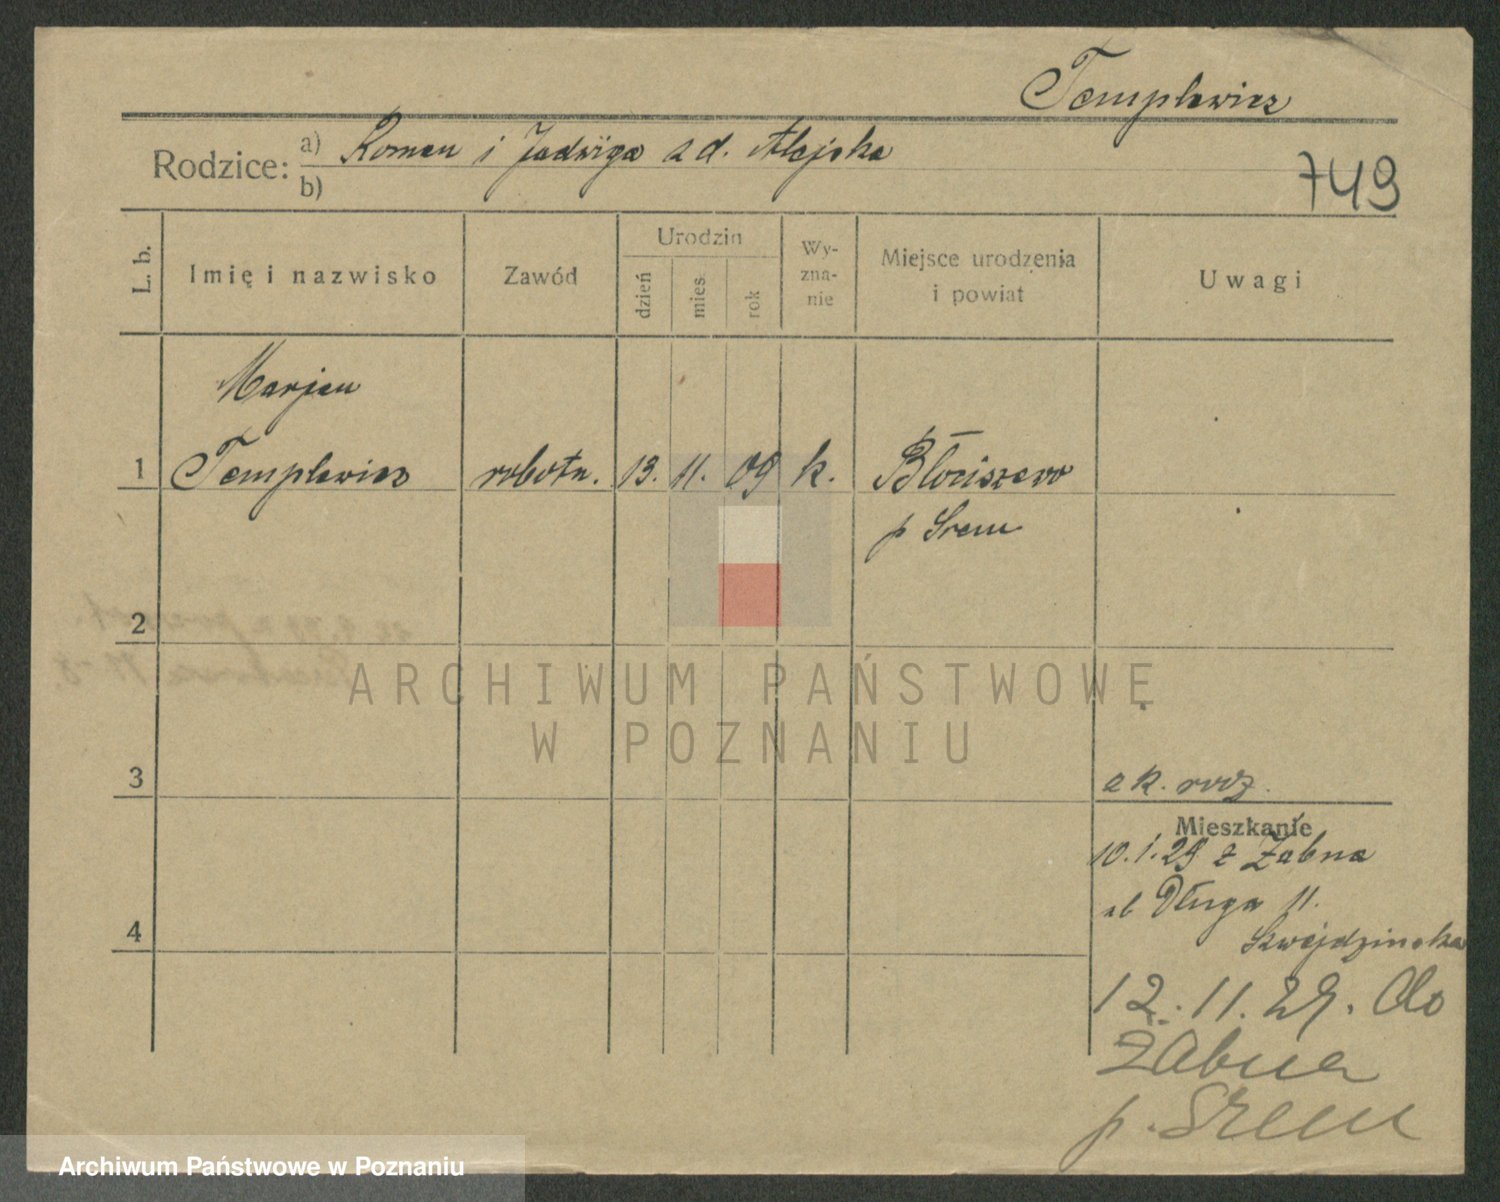 Templewicz
Rodzice: a) Roman i Jadwiga z d. Alejska
b)
749
L. b.
Imię i nazwisko
Zawód
Urodzin
dzień
mies.
rok
Wy-
zna-
nie
Miejsce urodzenia
i powiat
Uwagi
Marjan
1 Templewicz robotn. 13. 11. 09 k. Błociszewo
p Śrem
2
3
a k. rodz.
Mieszkanie
10.1.29 z Żabna
ul Długa 11.
4
12.11.29. do
Żabna
p. Śrem
ARCHIWUM PAŃSTWOWE
W POZNANIU
Archiwum Państwowe w Poznaniu